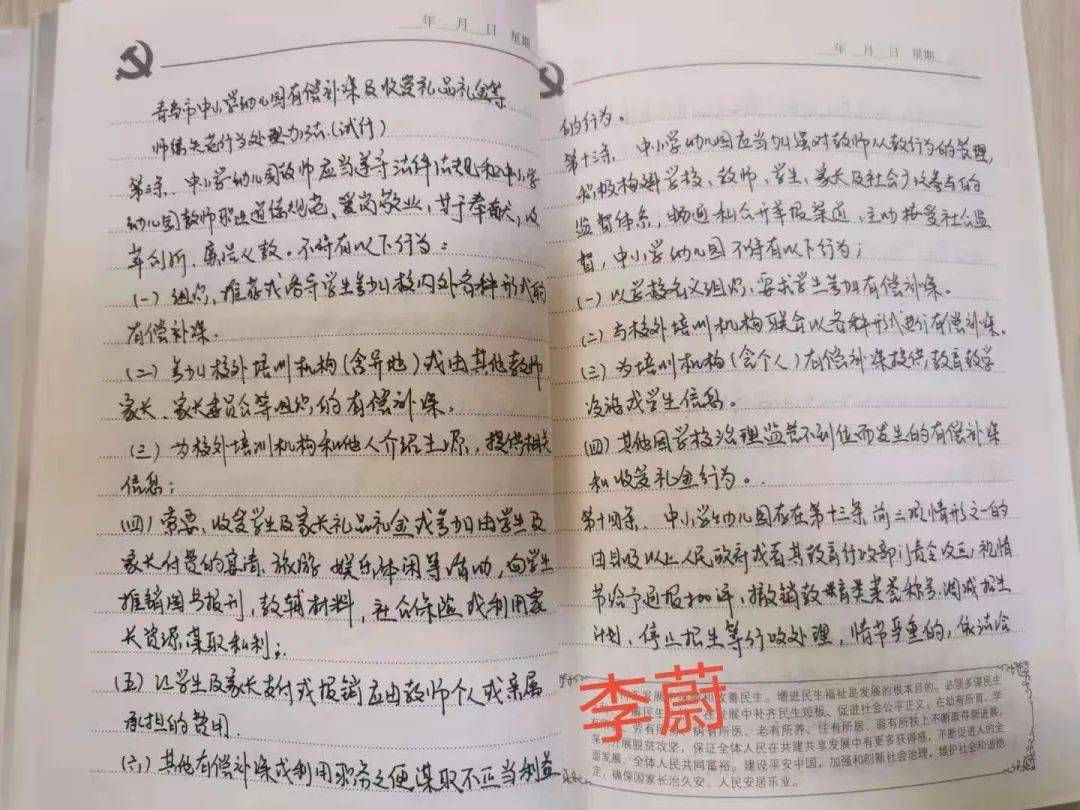 年 月 日 星期
青岛市中小学幼儿园有偿补课及收受礼品礼金等
师德失范行为处理办法(试行)
第三条、中小学幼儿园教师应当遵守法律法规和中小学
幼儿园教师职业道德规范、爱岗敬业,甘于奉献,改
革创新、廉洁从教。不得有以下行为:
(一)组织、推荐或诱导学生参加校内外各种形式的
有偿补课.
(二)参加校外培训机构(含异地)或由其他教师
家长、家长委员会等组织的有偿补课。
(三)为校外培训机构和他人介绍生源,提供相关
信息;
(四)索要、收受学生及家长礼品礼金或参加由学生及
家长付费的宴请、旅游、娱乐休闲等活动,向学生
推销图书报刊,教辅材料,社会保险或利用家
长资源谋取私利;
(五)让学生及家长支付或报销应由教师个人或亲属
承担的费用
(六)其他有偿补课或利用职务之便谋取不正当利益
年 月 日 星期
的行为。
第十三条、中小学幼儿园应当加强对教师从教行为的管理,
积极构建学校、教师、学生、家长及社会广泛参与的
监督体系,畅通和公开举报渠道,主动接受社会监
督,中小学幼儿园不得有以下行为;
(一)以学校名义组织,要求学生参加有偿补课.
(二)与校外培训机构联合以各种形式进行有偿补课.
(三)为培训机构(含个人)有偿补课提供教育教学
设施或学生信息。
(四)其他因学校治理监管不到位而发生的有偿补课
和收受礼金行为。
第十四条、中小学幼儿园存在第十三条前三项情形之一的
由县级以上人民政府或者其教育行政部门责令改正,视情
节给予通报批评、撤销教育类荣誉称号、调减招生
计划、停止招生等行政处理,情节严重的,依法给
李蔚
发展 和改善民生。增进民生福祉是发展的根本目的。必须多谋民生
解民生 在发展中补齐民生短板、促进社会公平正义,在幼有所育、学
劳有所 病有所医、老有所养、住有所居、弱有所扶上不断取得新进展,
深 开展脱贫攻坚,保证全体人民在共建共享发展中有更多获得感,不断促进人的全
面发展、全体人民共同富裕。建设平安中国,加强和创新社会治理,维护社会和谐稳
定,确保国家长治久安、人民安居乐业。